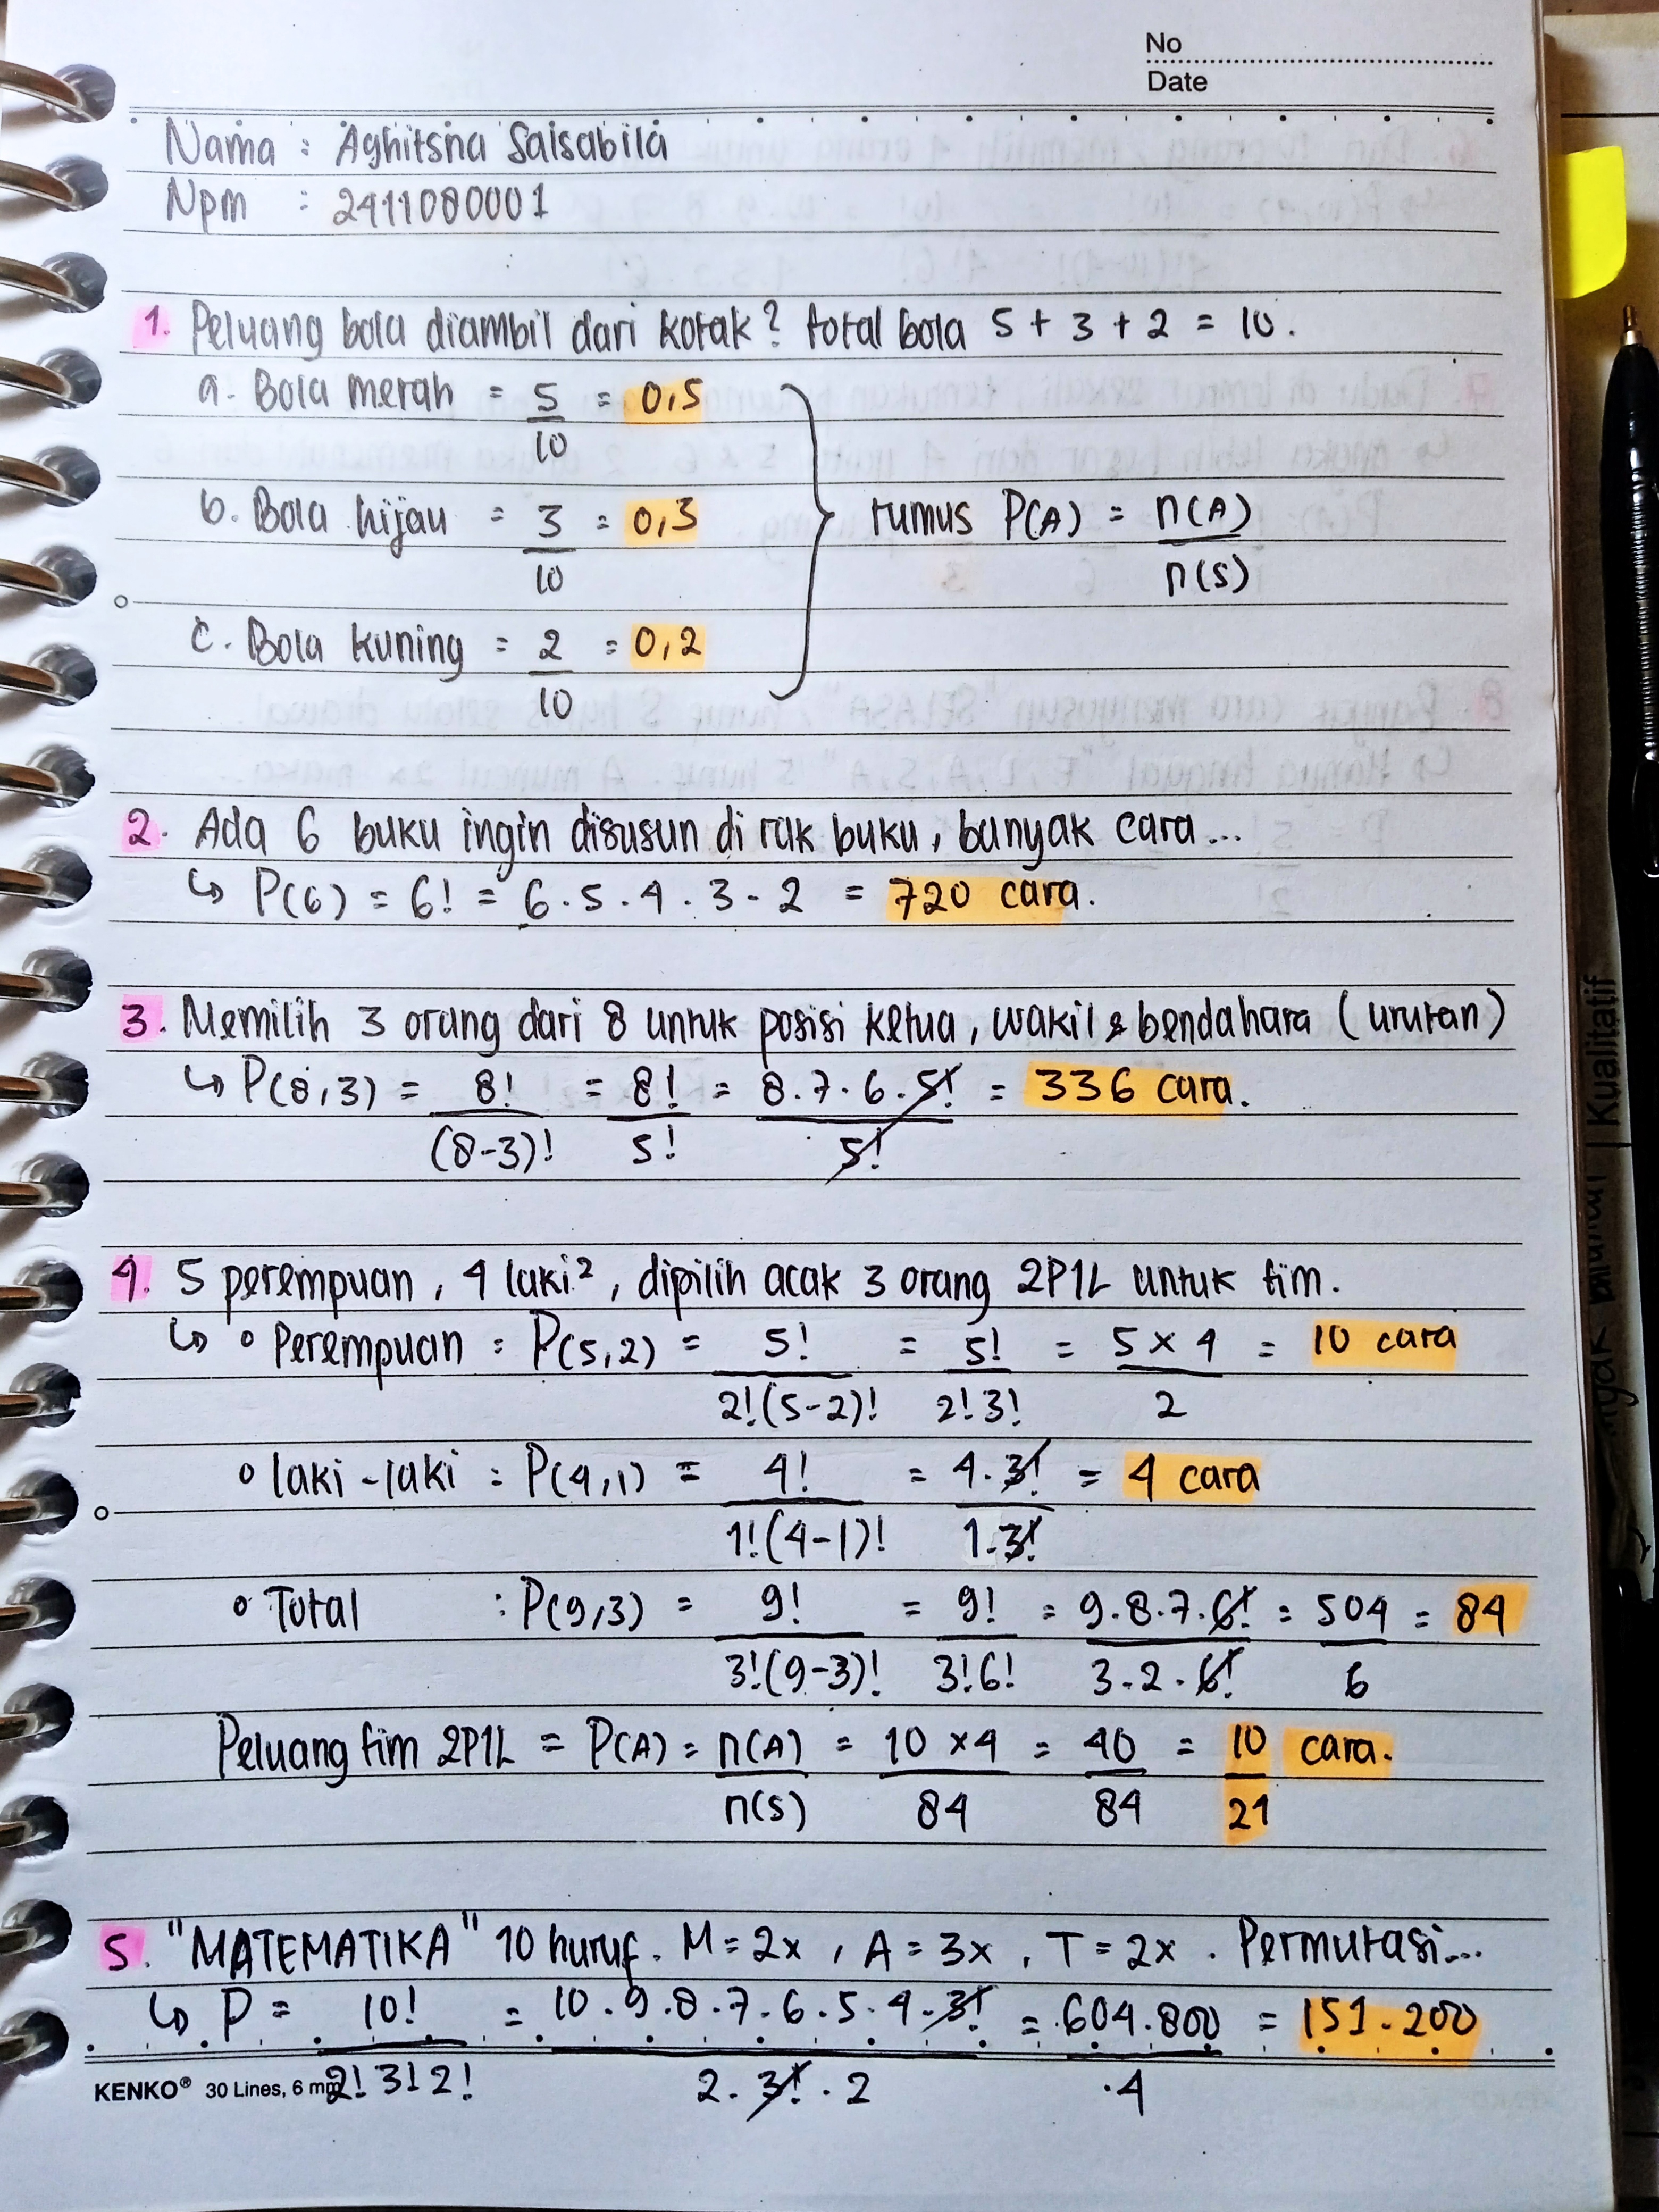 No
Date
Nama : Aghitsna Salsabila
Npm : 2411080001
1. Peluang bola diambil dari kotak? total bola 5 + 3 + 2 = 10.
a. Bola merah = 5/10 = 0,5
b. Bola hijau = 3/10 = 0,3
rumus P(A) = n(A)/n(S)
c. Bola kuning = 2/10 = 0,2
2. Ada 6 buku ingin disusun di rak buku, banyak cara...
↳ P(6) = 6! = 6 . 5 . 4 . 3 - 2 = 720 cara.
3. Memilih 3 orang dari 8 untuk posisi ketua, wakil & bendahara (urutan)
↳ P(8,3) = 8!/(8-3)! = 8!/5! = 8.7.6.5!/5! = 336 cara.
4. 5 perempuan, 4 laki², dipilih acak 3 orang 2P1L untuk tim.
↳ ∘ Perempuan : P(5,2) = 5!/2!(5-2)! = 5!/2!3! = 5 x 4/2 = 10 cara
∘ laki-laki : P(4,1) = 4!/1!(4-1)! = 4.3!/1.3! = 4 cara
∘ Total : P(9,3) = 9!/3!(9-3)! = 9!/3!6! = 9.8.7.6!/3.2.6! = 504/6 = 84
Peluang tim 2P1L = P(A) = n(A)/n(S) = 10 x 4/84 = 40/84 = 10/21 cara.
5. "MATEMATIKA" 10 huruf. M = 2x, A = 3x, T = 2x. Permutasi...
↳ P = 10!/2!3!2! = 10.9.8.7.6.5.4.3!/2.3!.2 = 604.800/4 = 151.200
KENKO® 30 Lines, 6 mm
Kualitatif